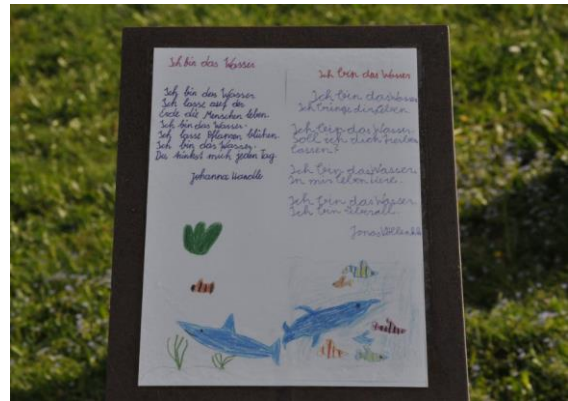 Ich bin das Wasser
Ich bin das Wasser.
Ich lasse auf der
Erde die Menschen leben.
Ich bin das Wasser.
Ich lasse Pflanzen blühen.
Ich bin das Wasser.
Du trinkst mich jeden Tag.
Johanna
Ich bin das Wasser
Ich bin das Wasser.
Ich bringe dir Leben.
Ich bin das Wasser.
Soll ich dich treiben
lassen?
Ich bin das Wasser.
In mir leben Tiere.
Ich bin das Wasser.
Ich bin überall.
Jona